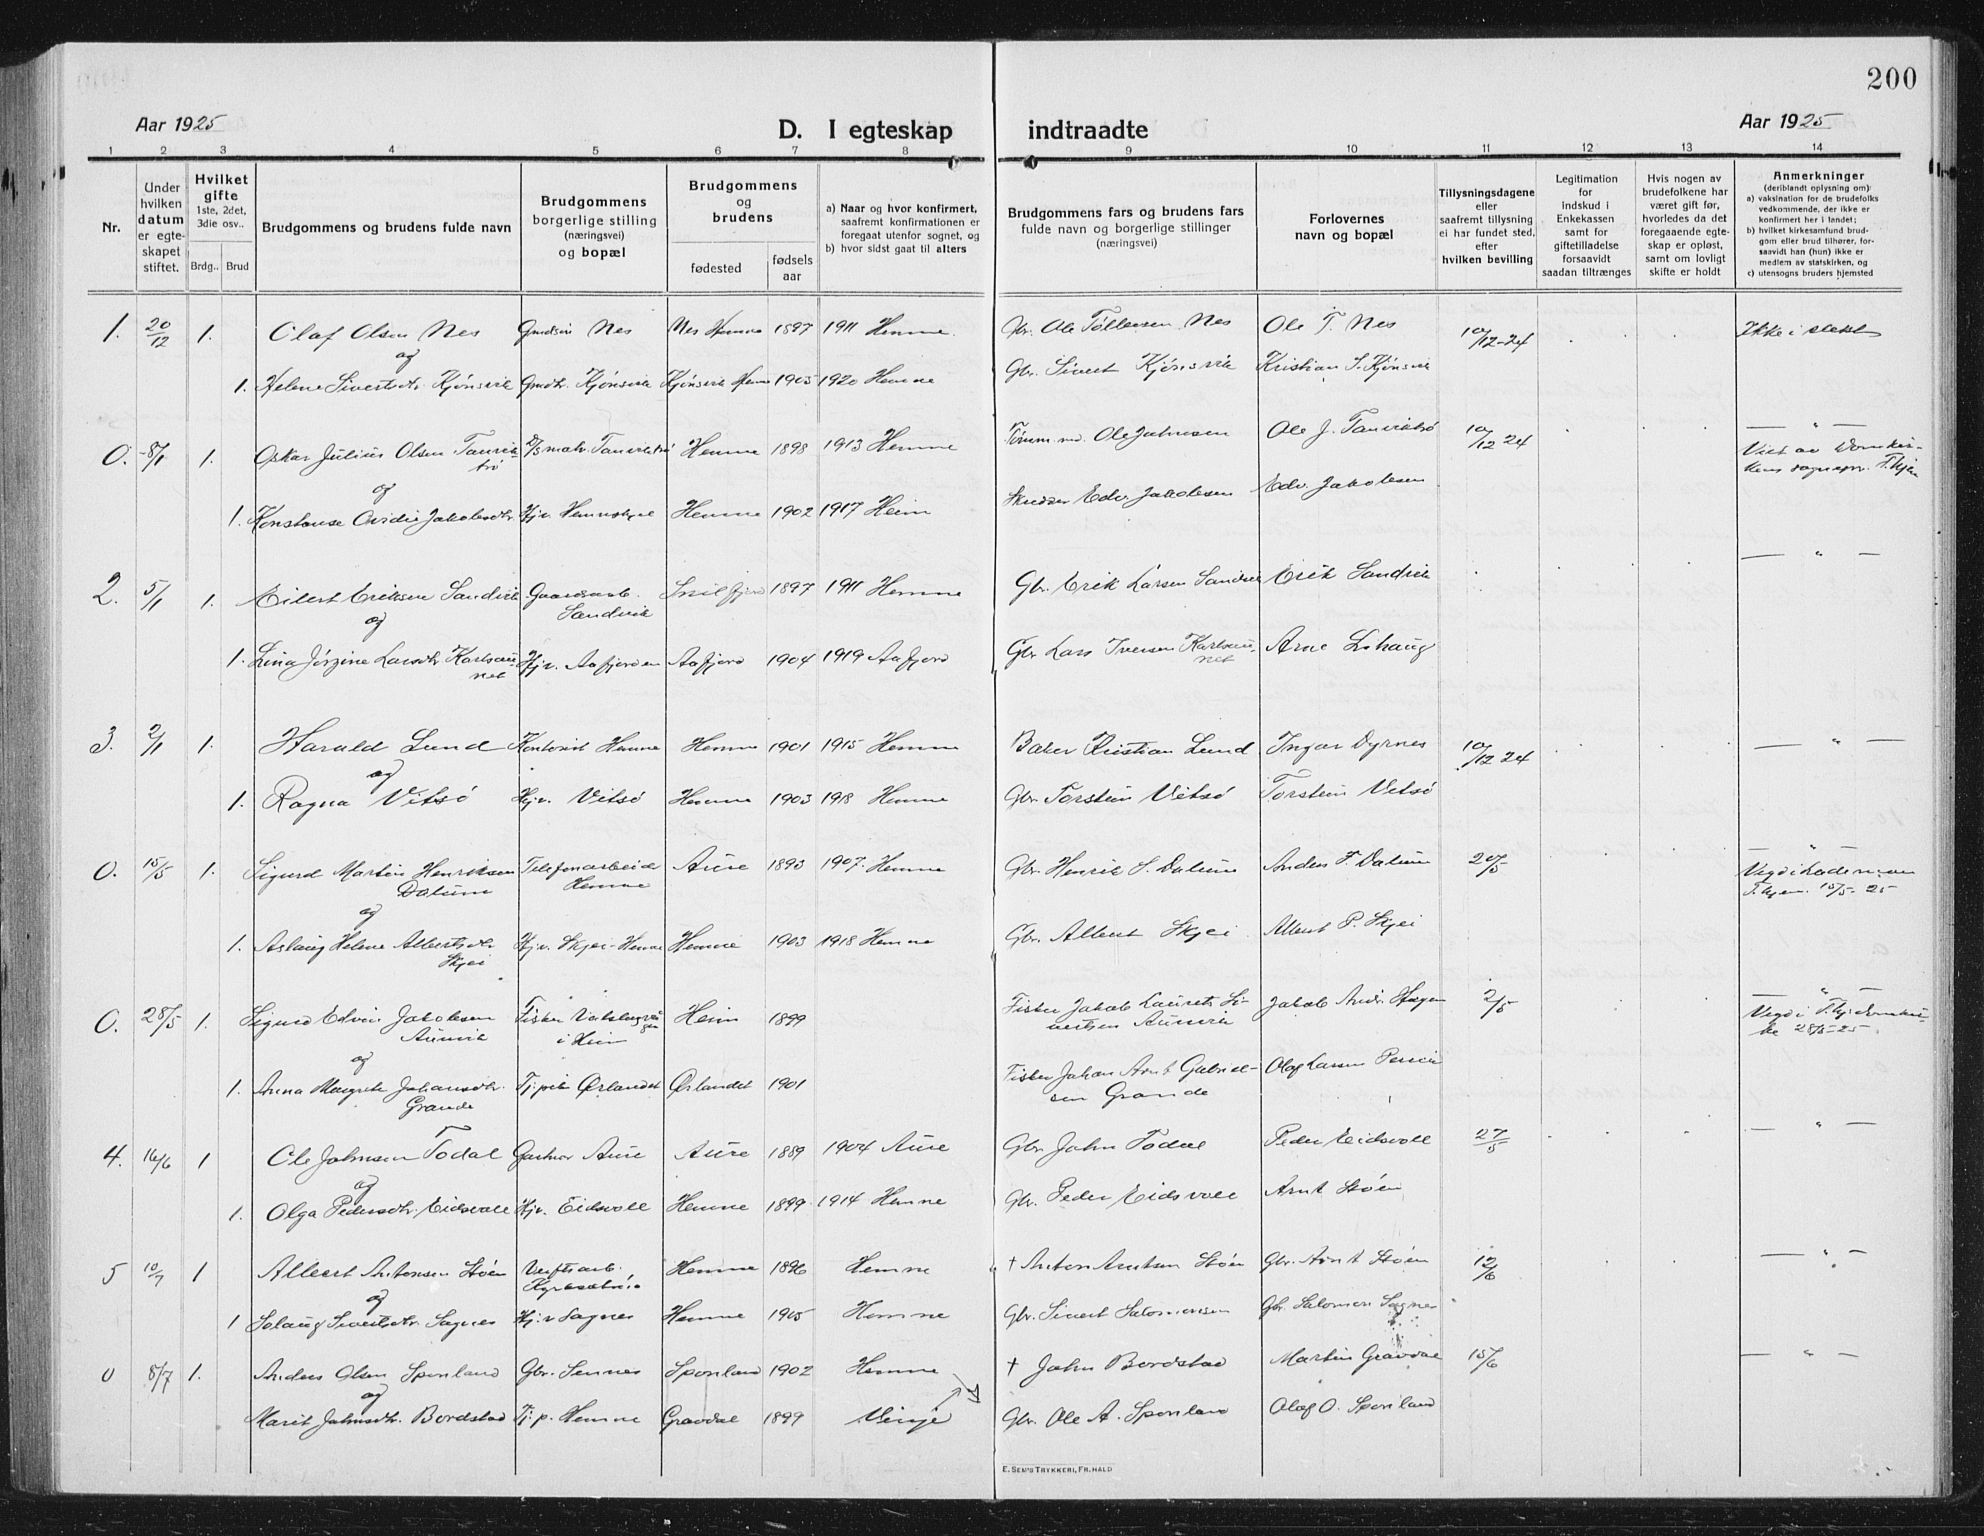 200
Aar 1925
D. I egteskap indtraadte
Aar 1925
1 2 3 4 5 6 7 8 9 10 11 12 13 14
Nr.
Under hvilken datum er egteskapet stiftet.
Hvilket gifte
1ste, 2det, 3die osv..
Brdg.. Brud
Brudgommens og brudens fulde navn
Brudgommens borgerlige stilling (næringsvei) og bopæl
Brudgommens og brudens
fødested
fødsels aar
a) Naar og hvor konfirmert, saafremt konfirmationen er foregaat utenfor sognet, og
b) hvor sidst gaat til alters
Brudgommens fars og brudens fars fulde navn og borgerlige stillinger (næringsvei)
Forlovernes navn og bopæl
Tillysningsdagene eller saafremt tillysning ei har fundet sted, efter hvilken bevilling
Legitimation for indskud i Enkekassen samt for giftetilladelse forsaavidt saadan tiltrænges
Hvis nogen av brudefolkene har været gift før, hvorledes da det foregaaende egteskap er opløst, samt om lovligt skifte er holdt
Anmerkninger
(deriblandt oplysning om):
a) vaksination for de brudefolks vedkommende, der ikke er konfirmert her i landet;
b) hvilket kirkesamfund brudgom eller brud tilhører, forsaavidt han (hun) ikke er medlem av statskirken, og
c) utensogns bruders hjemsted
1. 20/12 1. Olaf Olsen Nes Gmdsøn Nes Nes Hemne 1897 1911 Hemne Gbr. Ole Tøllersen Nes Ole T. Nes 10/12-24 Ikke i slekt
og
1. Helene Sivertsdtr. Kjönsvik Gmdtr. Kjönsvik Kjönsvik Hemne 1905 1920 Hemne Gbr. Sivert Kjönsvik Kristian S. Kjönsvik
0. 8/1 1. Oskar Julius Olsen Tanviktrø Tanviktrø Hemne 1898 1913 Hemne Tømm. md. Ole Johnsen Ole J. Tanviktrø 10/12 24 — " —
Viet av Domkirkens sognepr. T.hjem
og
1. Konstanse Ovidie Jakobsdtr. Hjv. Hemne 1902 1917 Heim Skredder Edv. Jakobsen Edv. Jakobsen
2. 5/1 1. Eilert Eriksen Sandvik Gaardsarb. Sandvik Snilfjord 1897 1911 Hemne Gbr. Erik Larsen Sandvik Erik Sandvik — " —
og
1. Lina Jørgine Larsdtr. Karlsaunet Hjv. Aafjorden Aafjord 1904 1919 Aafjord Gbr. Lars Iversen Karlsaunet Arne Lihaug
3. 2/1 1. Harald Lund Kontorist Hemne Hemne 1901 1915 Hemne Baker Kristian Lund Ingar Dyrnes 10/12 24 — " —
og
1. Ragna Vitsö Hjv. Vitsö Hemne 1903 1918 Hemne Gbr. Torstein Vitsö Torstein Vitsö
0. 15/5 1. Sigurd Martin Henriksen Dalum Telefonarbeid Hemne Aure 1893 1907 Hemne Gbr. Henrik S. Dalum Anders F. Dalum 20/5 — " —
Vigd i Lademoen T.hjem. 15/5-25
og
1. Aslaug Helene Albertsdtr. Skjei Hjv. Skjei-Hemne Hemne 1903 1918 Hemne Gbr. Albert Skjei Albert P. Skjei
0. 28/5 1. Sigurd Edvin Jakobsen Aunvik Fisker i Heim Heim 1899 Fisker Jakob Laurits Sivertsen Aunvik Jakob Andr. Hagen 2/5 — " —
Vigd i T.hj. domkirke 28/5-25
og
1. Anna Margrete Johansdtr. Grande Tj.pike Ørlandet Ørlandet 1901 Fisker Johan Arnt Gabrielsen Grande Olaf Larsen
4. 16/6 1 Ole Johnsen Todal Gartner Aure Aure 1889 1904 Aure Gbr. John Todal Peder Eidsvole 27/5 — " —
og
1. Olga Pedersdtr. Eidsvole Hjv. Eidsvole Hemne 1899 1914 Hemne Gbr. Peder Eidsvole Arnt Stöen
5 10/7 1 Albert Antonsen Stöen Verftsarb. Hemne 1896 Hemne † Anton Arntsen Stöen Gbr. Arnt Stöen 12/6 — " —
og
1 Solaug Sivertsdtr. Sagnes Hj.v Sagnes Hemne 1905 Hemne Gbr. Sivert Salomonsen Gbr. Salomon Sagnes
0 8/7 1. Anders Olsen Sponland Gbr. Sennes Sponland 1902 Hemne † John Bordstad Martin Gravdal 15/6 — " —
og
Marit Johnsdtr. Bordstad Tj.p. Hemne Gravdal 1899 Vinje Gbr. Ole A. Sponland Olaf O. Sponland
E. SEM'S TRYKKERI, FR.HALD